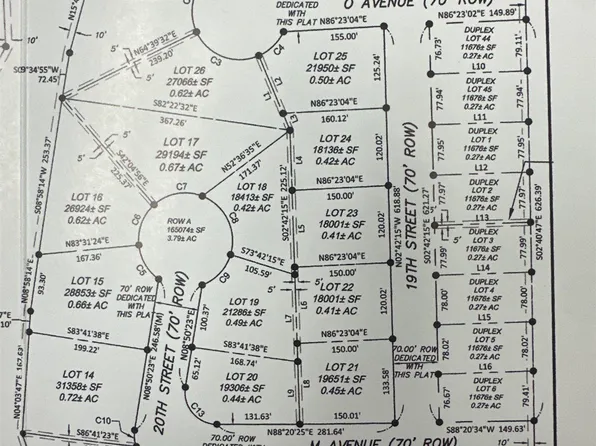 O AVENUE (70' ROW)
DEDICATED
WITH
THIS PLAT
N86°23'04"E
155.00'
N86°23'02"E 149.89'
10'
S09°34'55"W
72.45'
N64°39'32"E
239.20'
5'
C3
C4
LOT 26
27066± SF
0.62± AC
LOT 25
21950± SF
0.50± AC
125.24'
76.73'
DUPLEX
LOT 44
11676± SF
0.27± AC
79.11'
L10
S82°22'32"E
367.26'
L1
L2
L3
N86°23'04"E
160.12'
77.94'
DUPLEX
LOT 45
11676± SF
0.27± AC
77.94'
L11
5'
5'
S42°04'56"E
225.37'
LOT 17
29194± SF
0.67± AC
N52°36'35"E
171.37'
LOT 24
18136± SF
0.42± AC
L4
120.02'
77.95'
DUPLEX
LOT 1
11676± SF
0.27± AC
77.95'
L12
S08°58'14"W 253.37'
C7
LOT 18
18413± SF
0.42 AC
S02°42'15"E
225.12'
N86°23'04"E
150.00'
77.97'
DUPLEX
LOT 2
11676± SF
0.27± AC
77.97'
L13
LOT 16
26924± SF
0.62± AC
ROW A
165074± SF
3.79± AC
C8
LOT 23
18001± SF
0.41± AC
L5
120.02'
N02°42'15"W 618.88'
19TH STREET (70' ROW)
S02°42'15"E 621.27'
S02°40'47"E 626.39'
5'
77.99'
DUPLEX
LOT 3
11676± SF
0.27± AC
77.99'
L14
N83°31'24"E
167.36'
C6
C9
S73°42'15"E
105.59'
5'
150.00'
N08°58'14"E
93.30'
10'
LOT 15
28853± SF
0.66± AC
70' ROW
DEDICATED
WITH
THIS PLAT
LOT 19
21286± SF
0.49± AC
100.37'
L6
L7
LOT 22
18001± SF
0.41± AC
120.02'
78.00'
DUPLEX
LOT 4
11676± SF
0.27± AC
78.00'
L15
S83°41'38"E
199.22'
246.58'(M)
N08°50'23"E
20TH STREET (70' ROW)
N08°50'23"E
65.12'
S83°41'38"E
168.74'
L8
N86°23'04"E
150.00'
70.00' ROW
DEDICATED
WITH
THIS PLAT
78.02'
DUPLEX
LOT 5
11676± SF
0.27± AC
78.02'
L16
N04°03'47"E 167.63'
LOT 14
31358± SF
0.72± AC
LOT 20
19306± SF
0.44± AC
L9
LOT 21
19651± SF
0.45± AC
133.58'
76.67'
DUPLEX
LOT 6
11676± SF
0.27± AC
79.41'
C10
S86°41'23"E
C13
131.63'
150.01'
N88°20'25"E 281.64'
S88°20'34"W 149.63'
70.00' ROW
DEDICATED
M AVENUE (70' ROW)